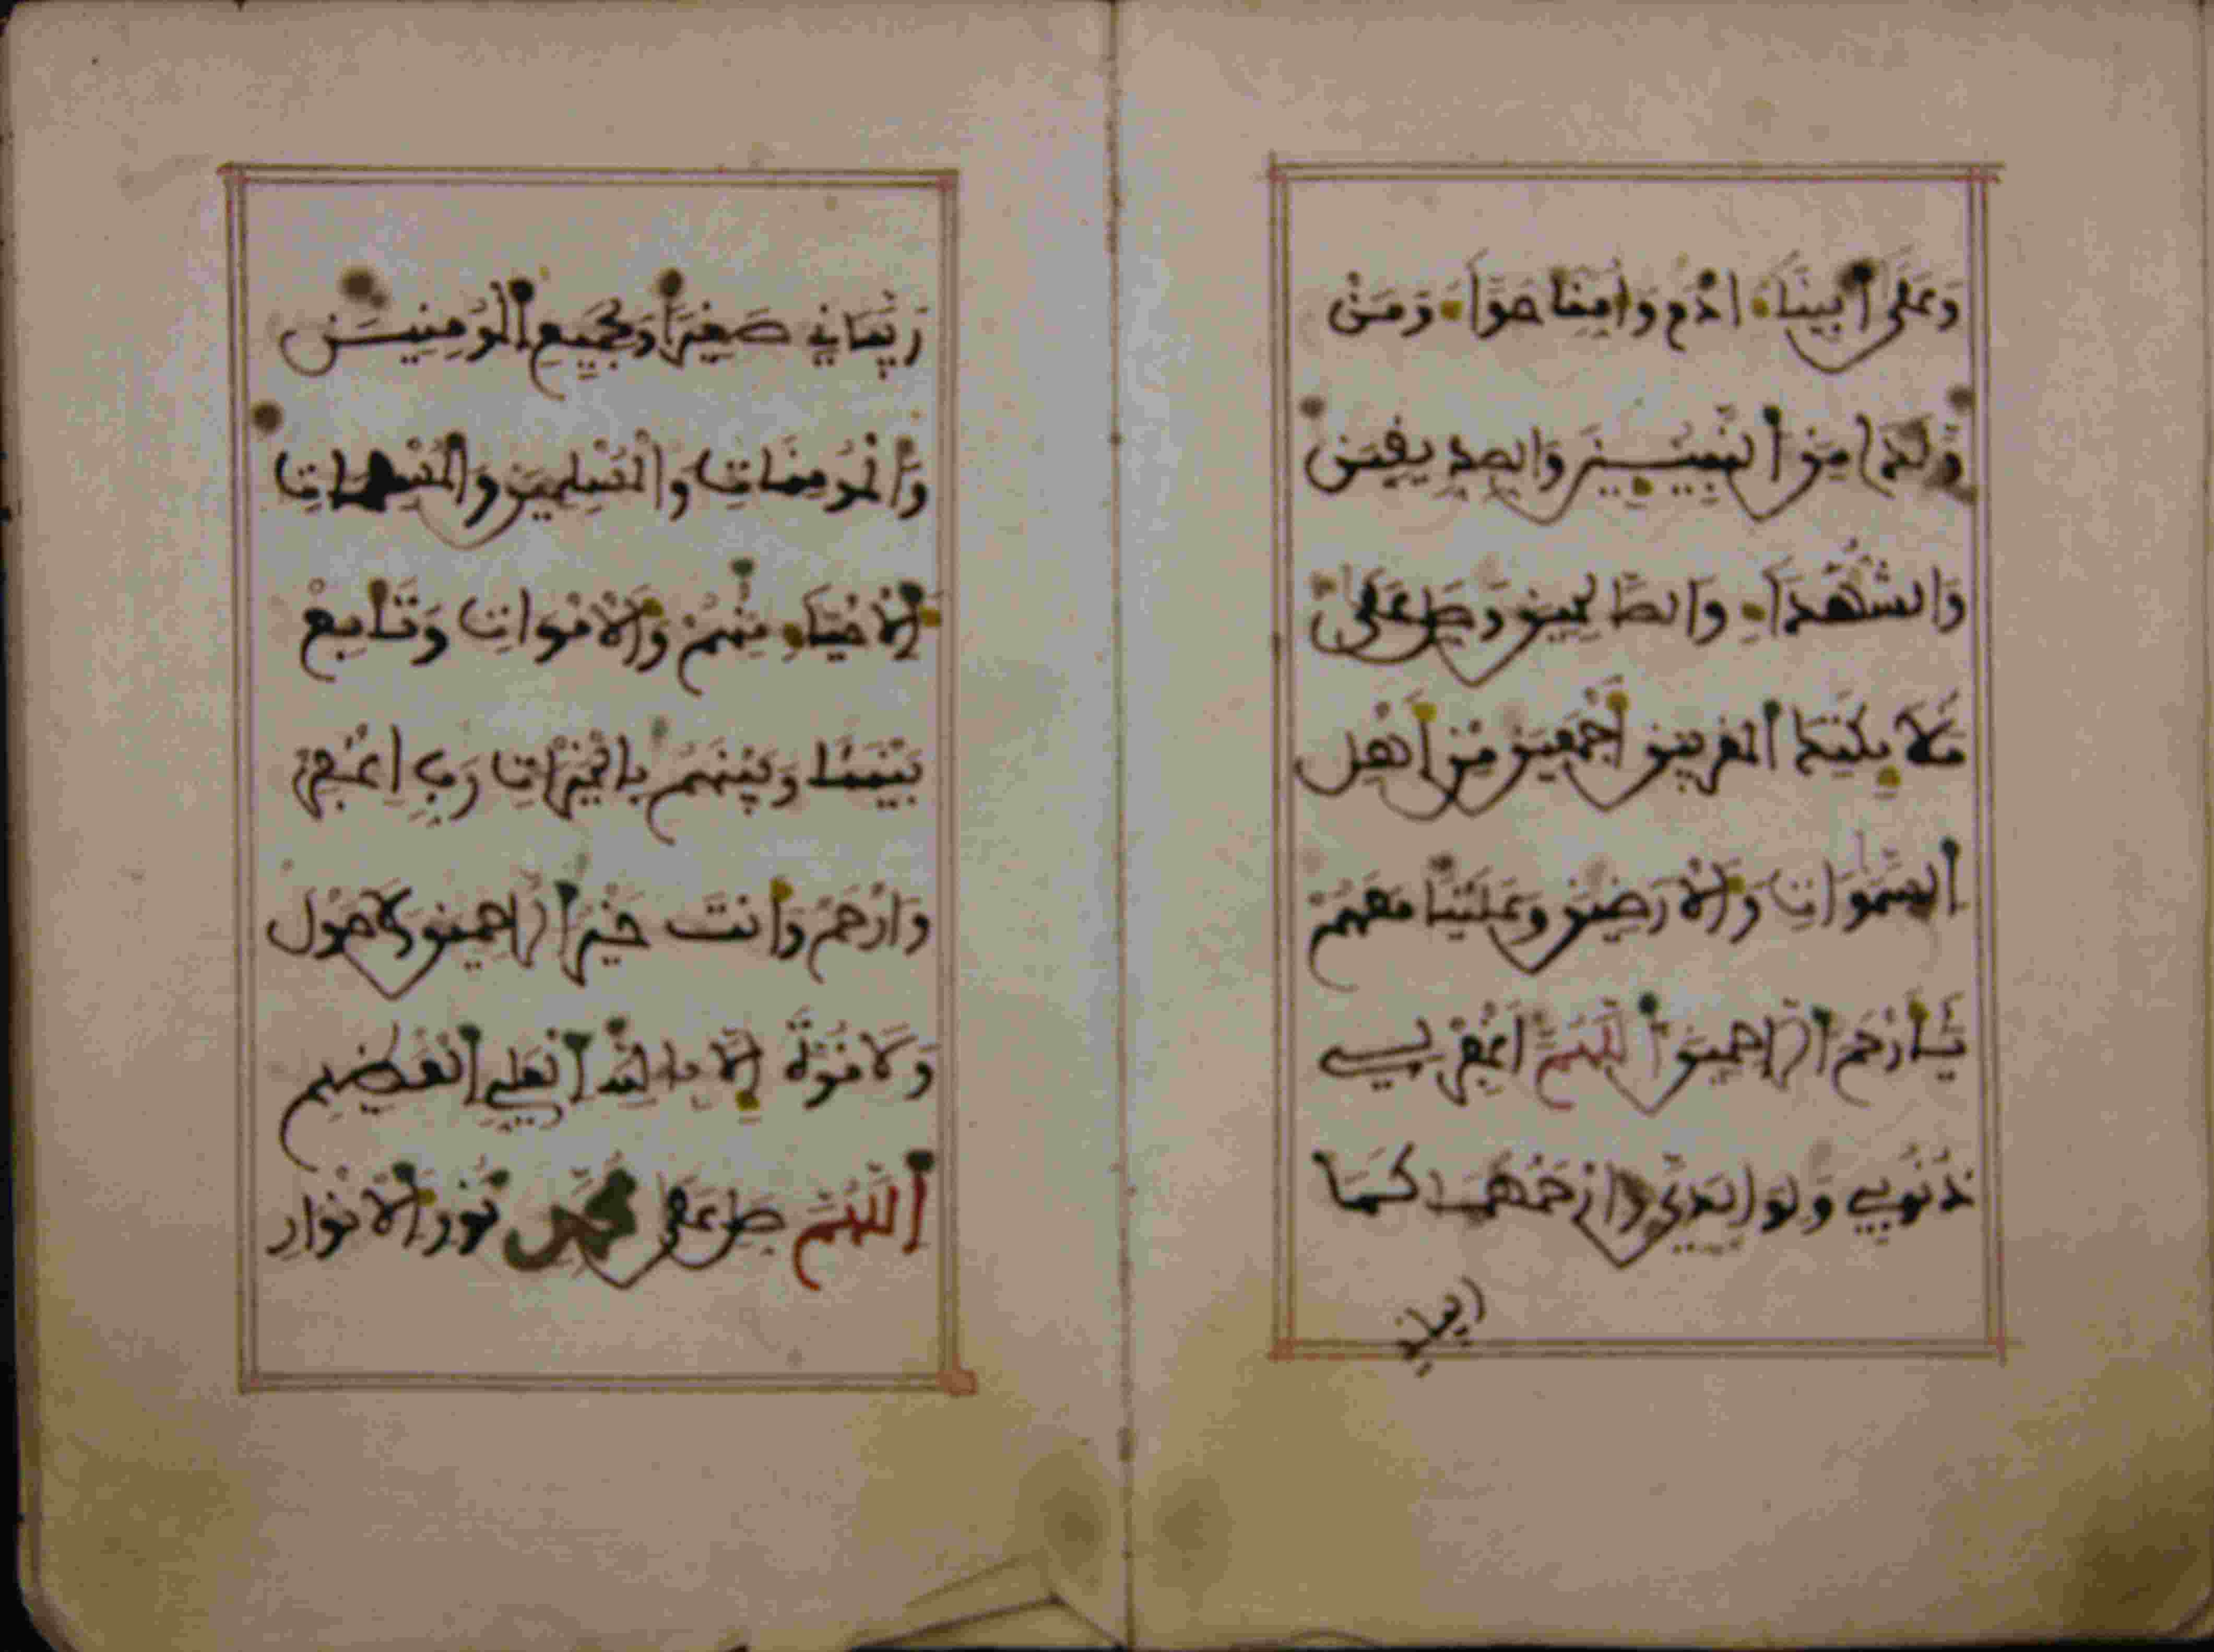 وَعَلَى أَبِينَاءَ ادَمَ وَامِّنَا حَوَّاءَ وَمَنْ
وَلَدَا مِنَ النَّبِيئِينَ وَالصِّدِيقِينَ
وَالشُّهَدَاءِ وَالصَّالِحِينَ وَصَلِّ عَلَى
مَلَائِكَتِكَ الْمُقَرَّبِينَ أَجْمَعِينَ مِنْ أَهْلِ
السَّمَوَاتِ وَالْأَرَضِينَ وَعَلَيْنَا مَعَهُمْ
يَا أَرْحَمَ الرَّاحِمِينَ اللَّهُمَّ اغْفِرْ لِي
ذُنُوبِي وَلِوَالِدَيَّ وَارْحَمْهُمَا كَمَا
رَبَّيَانِي صَغِيرًا وَلِجَمِيعِ الْمُومِنِينَ
وَالْمُومِنَاتِ وَالْمُسْلِمِينَ وَالْمُسْلِمَاتِ
الْأَحْيَاءِ مِنْهُمْ وَالْأَمْوَاتِ وَتَابِعْ
بَيْنَنَا وَبَيْنَهُمْ بِالْخَيْرَاتِ رَبِّ اغْفِرْ
وَارْحَمْ وَأَنْتَ خَيْرُ الرَّاحِمِينَ وَلَا حَوْلَ
وَلَا قُوَّةَ إِلَّا بِاللَّهِ الْعَلِيِّ الْعَظِيمِ
اللَّهُمَّ صَلِّ عَلَى مُحَمَّدٍ نُورِ الْأَنْوَارِ